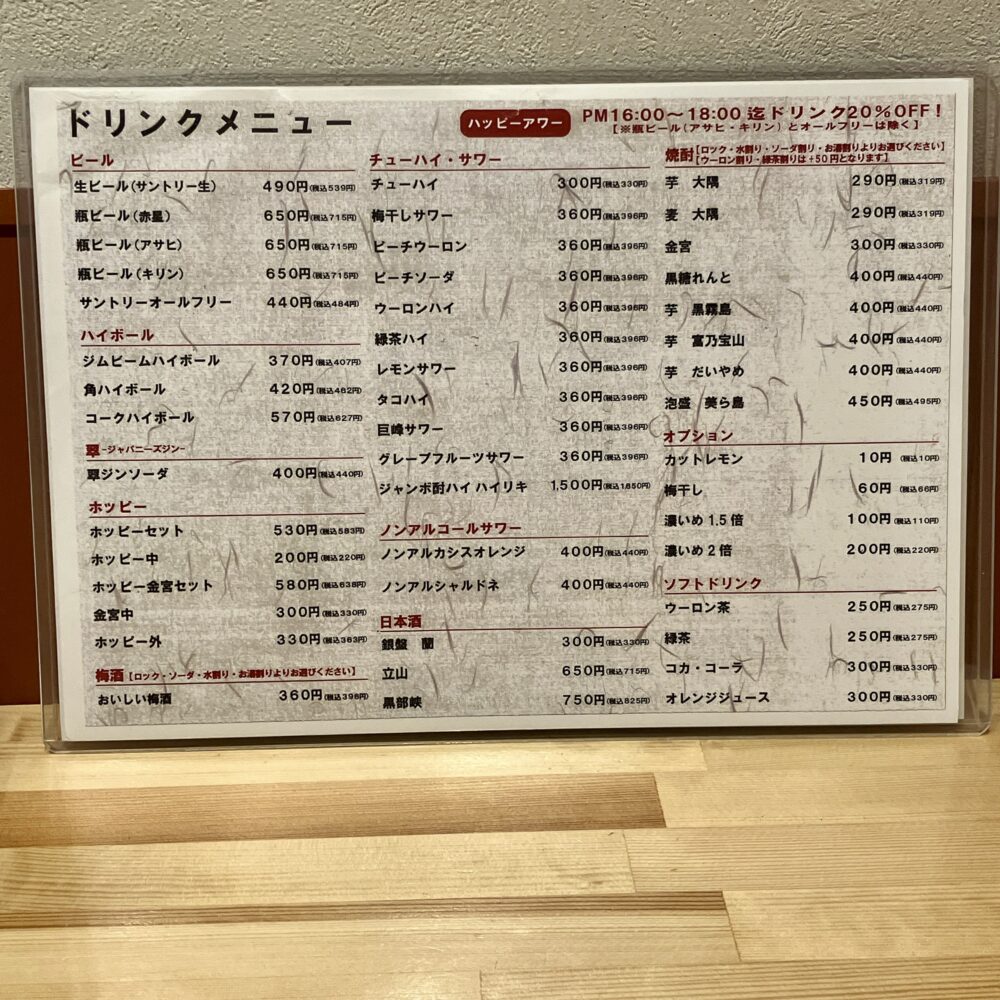 ドリンクメニュー
ハッピーアワー
PM16:00～18:00 迄ドリンク20％OFF！
【※瓶ビール(アサヒ・キリン)とオールフリーは除く】
ビール
生ビール(サントリー生) 490円(税込539円)
瓶ビール(赤星) 650円(税込715円)
瓶ビール(アサヒ) 650円(税込715円)
瓶ビール(キリン) 650円(税込715円)
サントリーオールフリー 440円(税込484円)
ハイボール
ジムビームハイボール 370円(税込407円)
角ハイボール 420円(税込462円)
コークハイボール 570円(税込627円)
翠-ジャパニーズジン-
翠ジンソーダ 400円(税込440円)
ホッピー
ホッピーセット 530円(税込583円)
ホッピー中 200円(税込220円)
ホッピー金宮セット 580円(税込638円)
金宮中 300円(税込330円)
ホッピー外 330円(税込363円)
梅酒【ロック・ソーダ・水割り・お湯割りよりお選びください】
おいしい梅酒 360円(税込396円)
チューハイ・サワー
チューハイ 300円(税込330円)
梅干しサワー 360円(税込396円)
ピーチウーロン 360円(税込396円)
ピーチソーダ 360円(税込396円)
ウーロンハイ 360円(税込396円)
緑茶ハイ 360円(税込396円)
レモンサワー 360円(税込396円)
タコハイ 360円(税込396円)
巨峰サワー 360円(税込396円)
グレープフルーツサワー 360円(税込396円)
ジャンボ酎ハイ ハイリキ 1,500円(税込1,650円)
ノンアルコールサワー
ノンアルカシスオレンジ 400円(税込440円)
ノンアルシャルドネ 400円(税込440円)
日本酒
銀盤 蘭 300円(税込330円)
立山 650円(税込715円)
黒部峡 750円(税込825円)
焼酎【ロック・水割り・ソーダ割り・お湯割りよりお選びください】
【ウーロン割り・緑茶割りは+50円となります】
芋 大隅 290円(税込319円)
麦 大隅 290円(税込319円)
金宮 300円(税込330円)
黒糖れんと 400円(税込440円)
芋 黒霧島 400円(税込440円)
芋 富乃宝山 400円(税込440円)
芋 だいやめ 400円(税込440円)
泡盛 美ら島 450円(税込495円)
オプション
カットレモン 10円(税込10円)
梅干し 60円(税込66円)
濃いめ1.5倍 100円(税込110円)
濃いめ2倍 200円(税込220円)
ソフトドリンク
ウーロン茶 250円(税込275円)
緑茶 250円(税込275円)
コカ・コーラ 300円(税込330円)
オレンジジュース 300円(税込330円)